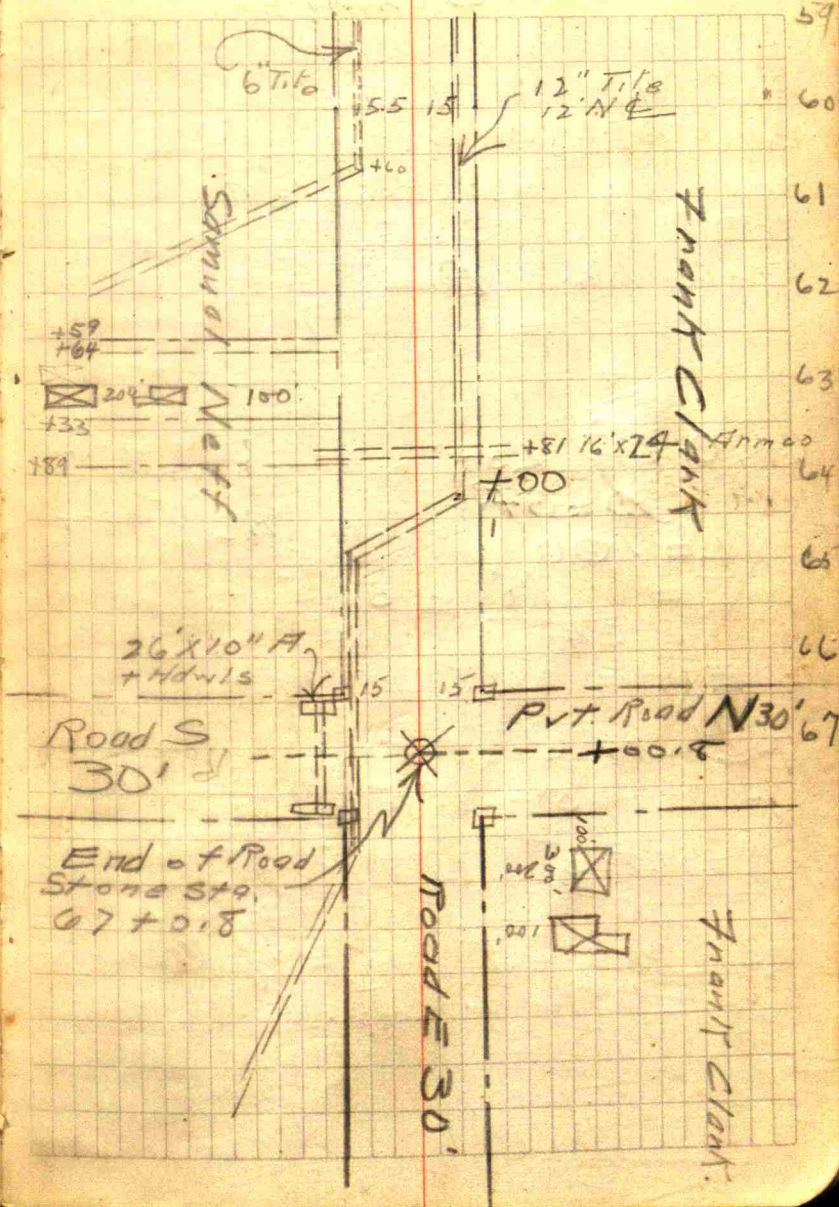 59
6" Tile
12" Tile
12' N ₵
60
5.5 15
+60
61
Samuel Neff
Frank Clark
62
+59
+64
63
204' 100'
+33
+81 16'x24 Armco
+89
64
+00
65
66
26'x10" A.
+ Hdwls
15 15
Pvt. Road N 30'
67
Road S
30'
+00.8
End of Road
Stone Sta.
67+0.8
Road E 30'
100'
300'
100'
Frank Clark